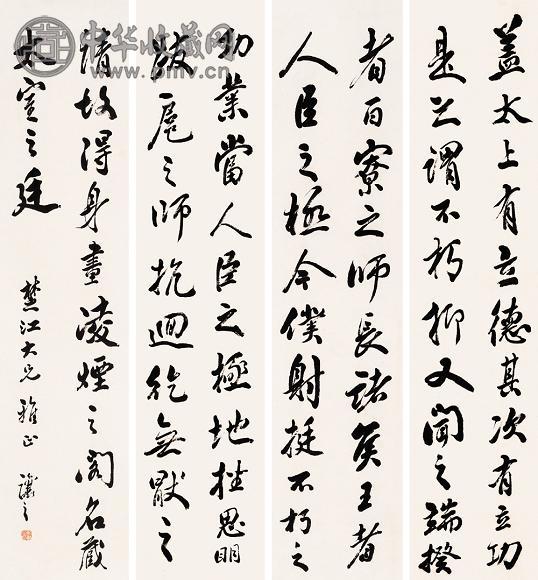 蓋太上有立德其次有立功
是之謂不朽抑又聞之端揆
者百寮之師長諸侯王者
人臣之極今僕射挺不朽之
功業當人臣之極地挫思明
跋扈之師抗迴紇無猒之
請故得身畫凌煙之閣名藏
太室之廷
江大兄 雅正 讓之
中华收藏网
www.pmcv.cn